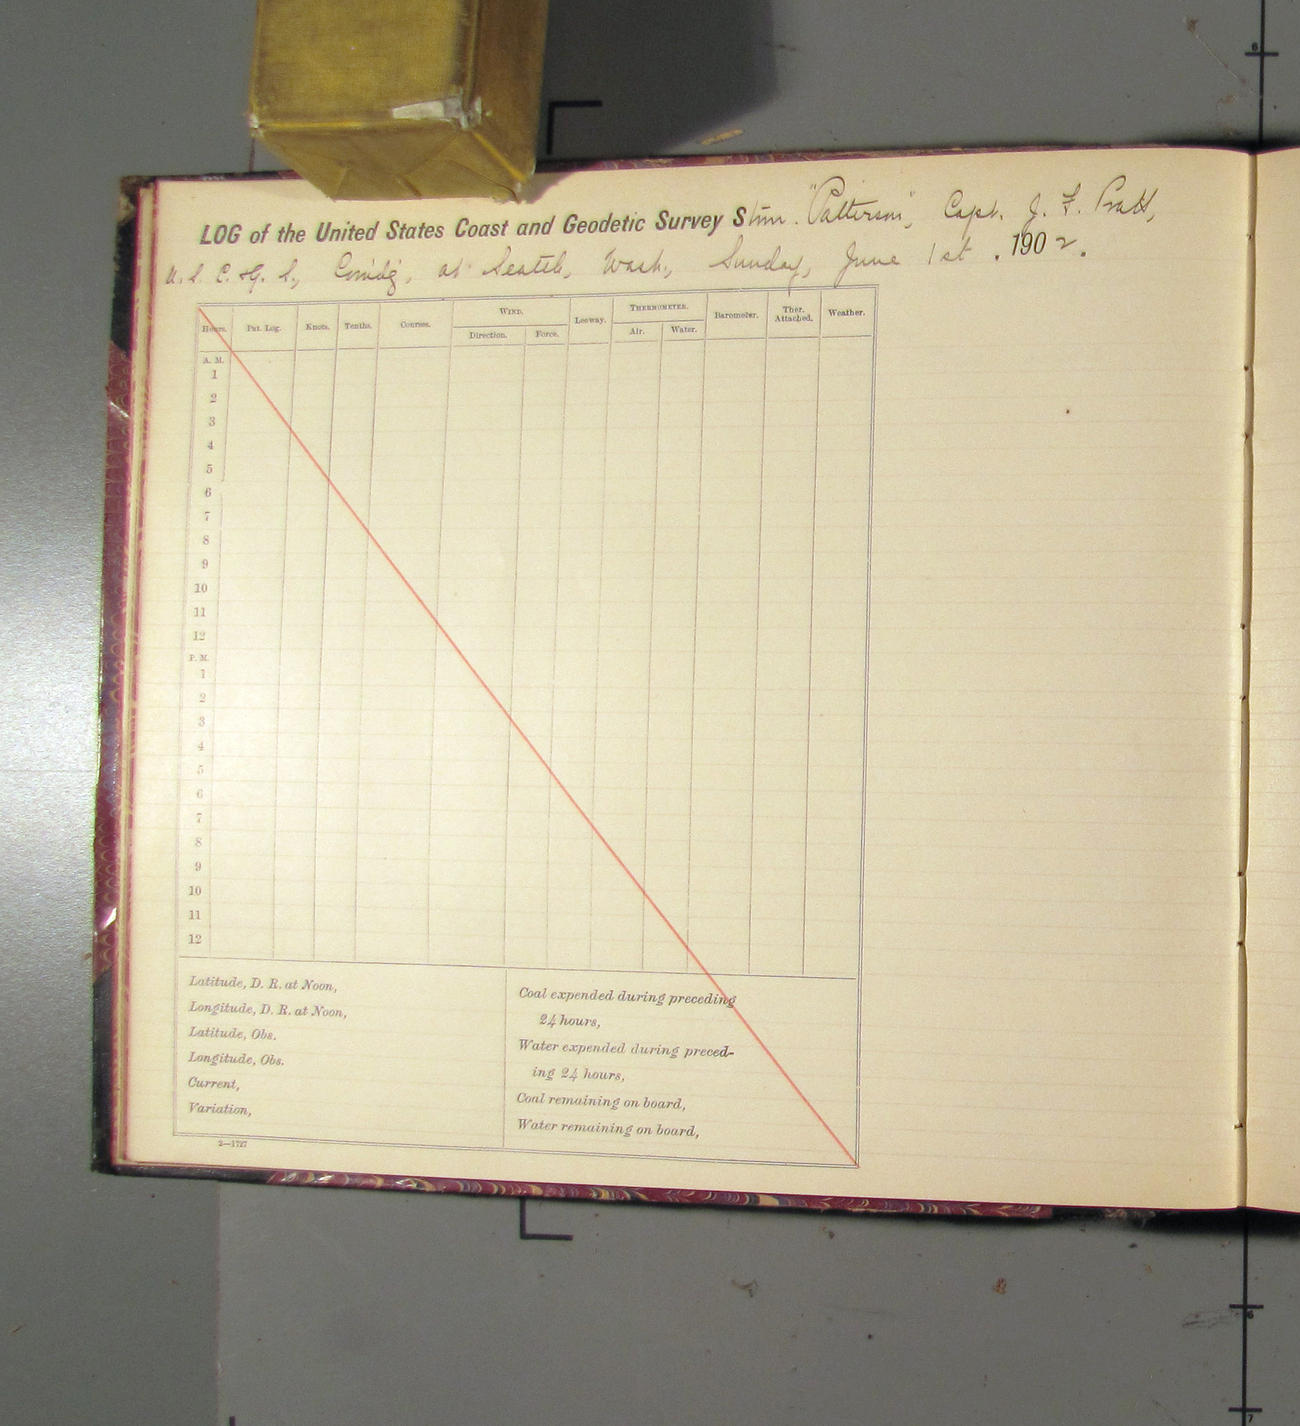 LOG of the United States Coast and Geodetic Survey Stmr. "Patterson", Capt. J. F. Pratt,
U. S. C. & G. S., Comdg., at Seattle, Wash., Sunday, June 1st . 1902.
Hours. Pat. Log. Knots. Tenths. Courses. WIND. Leeway. THERMOMETER. Barometer. Ther. Attached. Weather.
Direction. Force. Air. Water.
A. M.
1
2
3
4
5
6
7
8
9
10
11
12
P. M.
1
2
3
4
5
6
7
8
9
10
11
12
Latitude, D. R. at Noon,
Longitude, D. R. at Noon,
Latitude, Obs.
Longitude, Obs.
Current,
Variation,
Coal expended during preceding
24 hours,
Water expended during preced-
ing 24 hours,
Coal remaining on board,
Water remaining on board,
2—1727
6
6
7